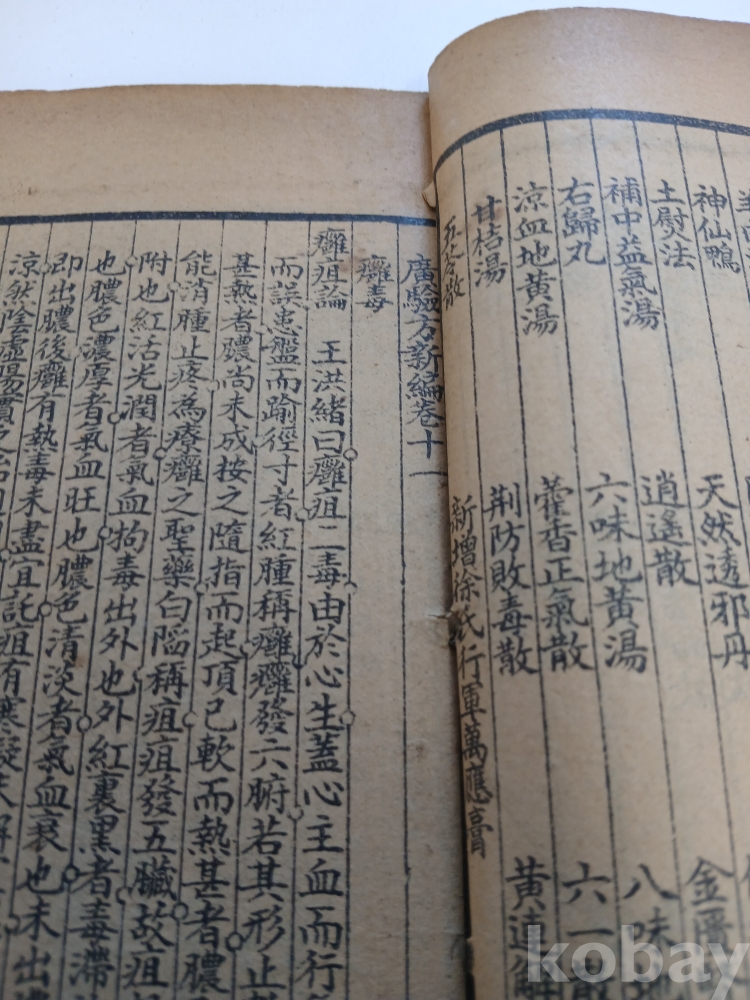 神仙鴨 天然透邪丹 金匱
土熨法 逍遙散
補中益氣湯 六味地黃湯 八味
右歸丸 藿香正氣散 六一
涼血地黃湯 荊防敗毒散 黃連解
甘桔湯
散 新增徐氏行軍萬應膏
廣驗方新編卷十一
癰毒
癰疽論 王洪緒曰癰疽二毒由於心生蓋心主血而行
而誤患盤而踰徑寸者紅腫稱癰癰發六腑若其形止
甚熱者膿尚未成按之隨指而起頂已軟而熱甚者膿
能消腫止疼為療癰之聖藥白陷稱疽疽發五臟故疽
附也紅活光潤者氣血拘毒出外也外紅裏黑者毒滯
也膿色濃厚者氣血旺也膿色清淡者氣血衰也未出
即出膿後癰有熱毒未盡宜託疽有寒凝未解
涼然陰虛陽